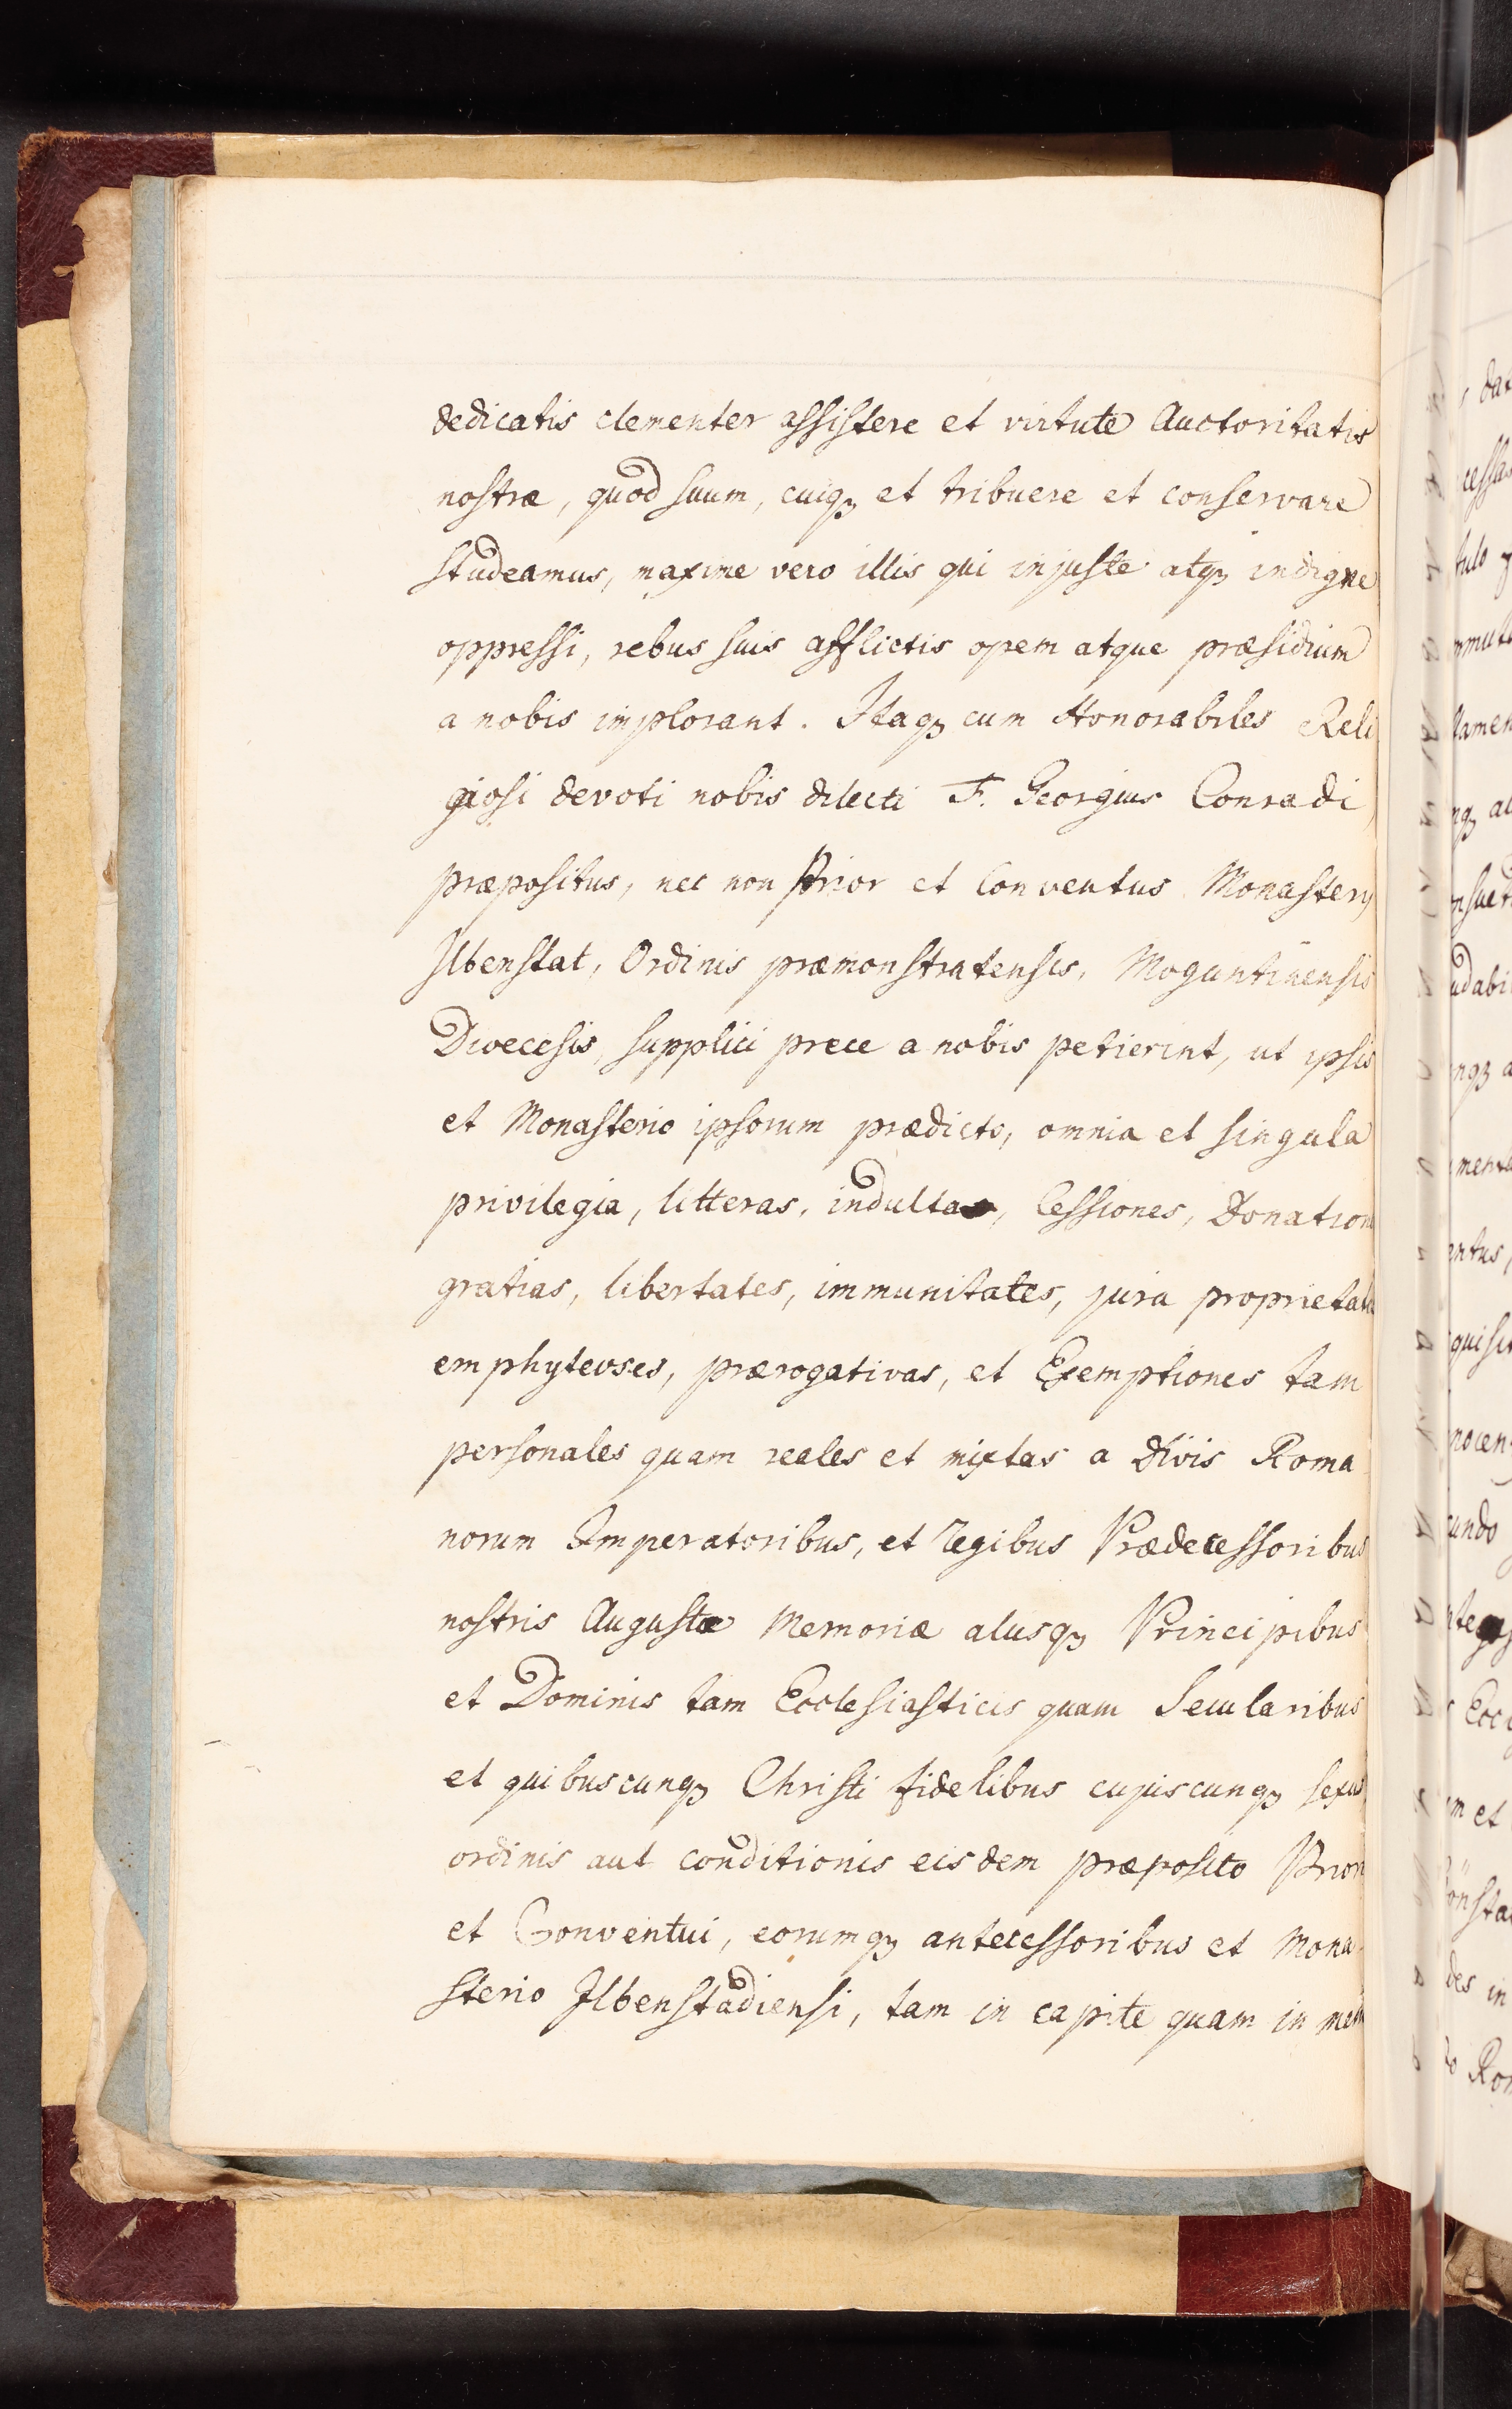 dedicatis clementer assistere et virtute Auctoritatis
nostræ, quod suum, cuiqȝ et tribuere et conservare
studeamus, maxime vero illis qui injuste atqȝ indigne
oppressi, rebus suis afflictis opem atque præsidium
a nobis implorant. Itaqȝ cum Honorabiles Reli
giosi devoti nobis dilecti F. Georgius Conradi
præpositus, nec non Prior et Conventus Monasterij
Ilbenstat, Ordinis præmonstratensis, Moguntinensis
Dioecesis, supplici prece a nobis petierint, ut ipsis
et Monasterio ipsorum prædicto, omnia et singula
privilegia, litteras, indulta, Cessiones, Donation
gratias, libertates, immunitates, jura proprietatis
emphyteoses, prærogativas, et Exemptiones tam
personales quam reales et mixtas a Divis Roma
norum Imperatoribus, et regibus Prædecessoribus
nostris Augustæ Memoriæ aliisqȝ Principibus
et Dominis tam Ecclesiasticis quam Secularibus
et quibuscunqȝ Christi fidelibus cujuscunqȝ sexus
ordinis aut conditionis eisdem præposito Priori
et Conventui, eorumqȝ antecessoribus et Mona
sterio Ilbenstadiensi, tam in capite quam in mem